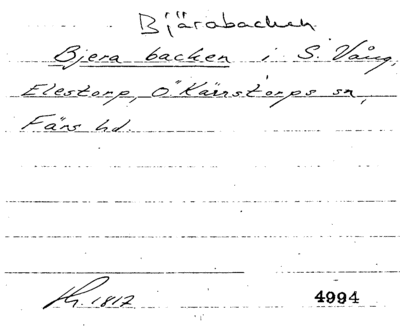 Bjärabacken
Bjera backen i S. Vång,
Elestorp, Ö Kärrstorps sn,
Färs hd.
1817
4994